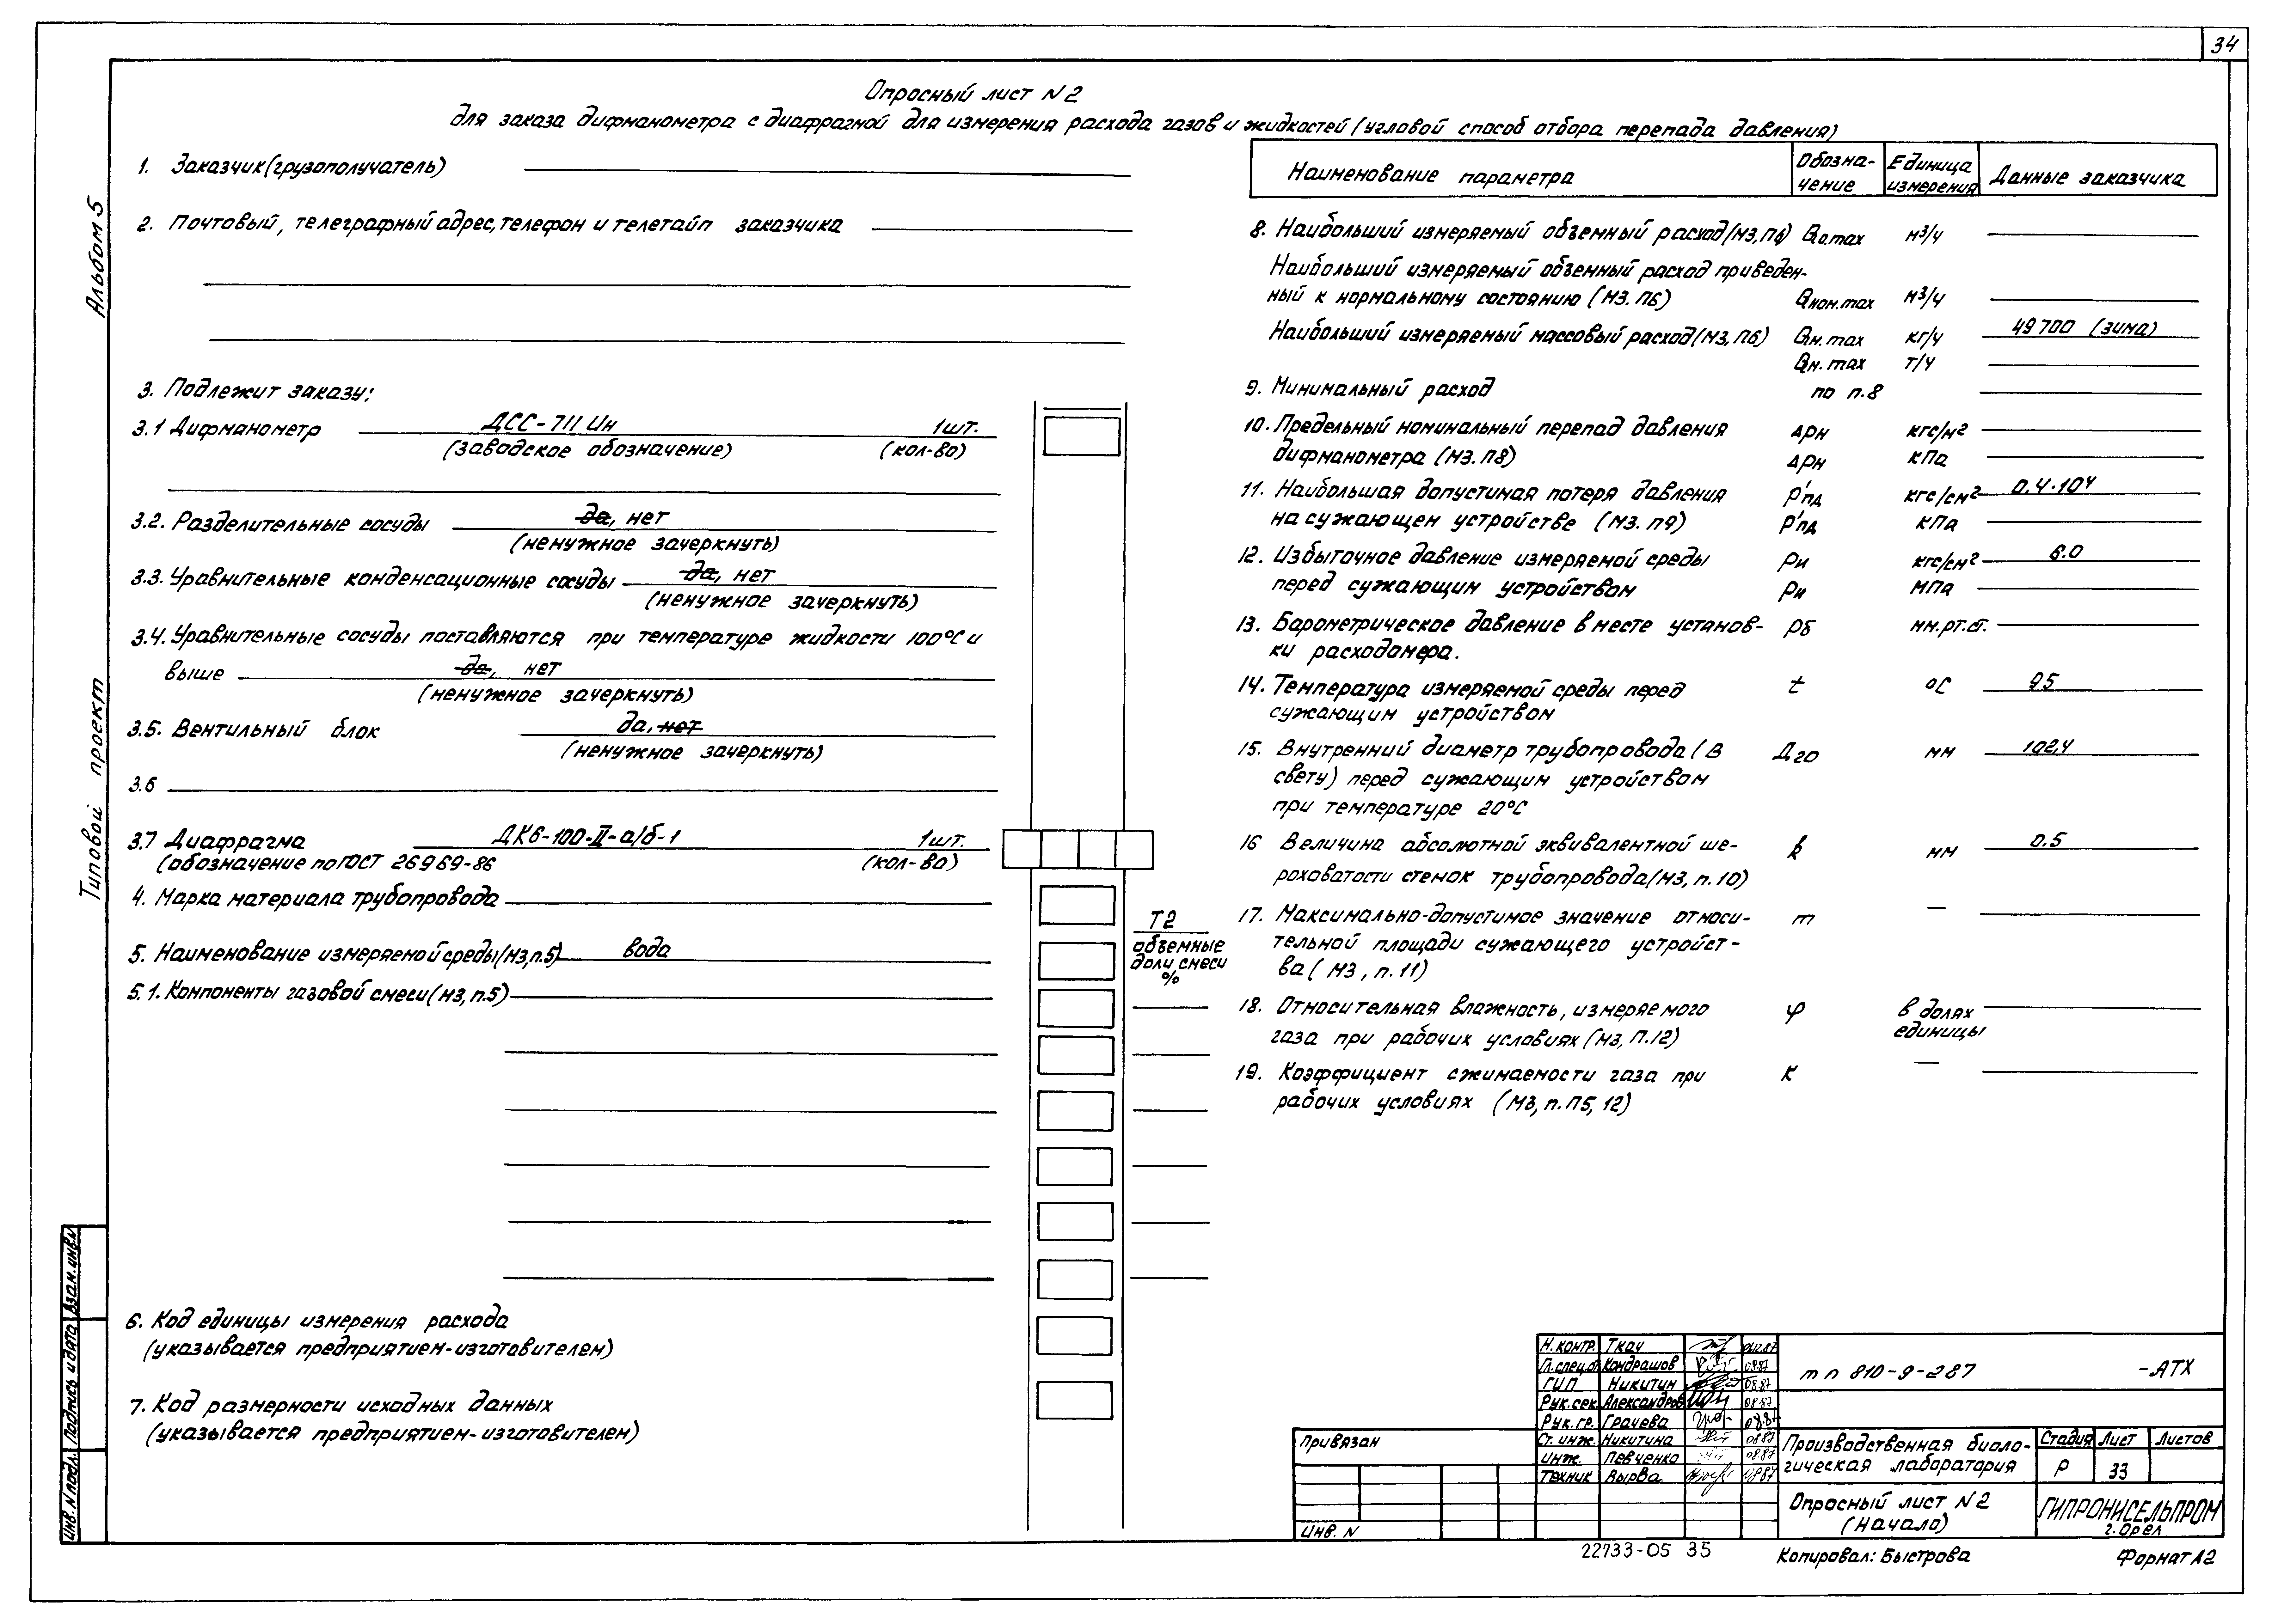 34
Опросный лист N2
для заказа дифманометра с диафрагмой для измерения расхода газов и жидкостей (угловой способ отбора перепада давления)
Альбом 5
Типовой проект
1. Заказчик (грузополучатель)
2. Почтовый, телеграфный адрес, телефон и телетайп заказчика
3. Подлежит заказу:
3.1 Дифманометр ДСС-711 Ин 1шт.
(заводское обозначение) (кол-во)
3.2. Разделительные сосуды да, нет
(ненужное зачеркнуть)
3.3. Уравнительные конденсационные сосуды да, нет
(ненужное зачеркнуть)
3.4. Уравнительные сосуды поставляются при температуре жидкости 100°С и
выше да, нет
(ненужное зачеркнуть)
3.5. Вентильный блок да, нет
(ненужное зачеркнуть)
3.6
3.7 Диафрагма ДК6-100-II-а/б-1 1шт.
(обозначение по ГОСТ 26969-86 (кол-во)
4. Марка материала трубопровода
5. Наименование измеряемой среды (МЗ, п.5) вода
Т2
объемные
доли смеси
%
5.1. Компоненты газовой смеси (МЗ, п.5)
6. Код единицы измерения расхода
(указывается предприятием-изготовителем)
7. Код размерности исходных данных
(указывается предприятием-изготовителем)
Наименование параметра
Обозна-
чение
Единица
измерения
Данные заказчика
8. Наибольший измеряемый объемный расход (МЗ, П6) Qо.max м³/ч
Наибольший измеряемый объемный расход приведен-
ный к нормальному состоянию (МЗ. П6) Qном.max м³/ч
Наибольший измеряемый массовый расход (МЗ, П6) Qм.max кг/ч 49700 (зима)
Qм.max т/ч
9. Минимальный расход по п.8
10. Предельный номинальный перепад давления ΔРн кгс/м²
дифманометра (МЗ. П8) ΔРн кПа
11. Наибольшая допустимая потеря давления Р'пд кгс/см² 0,4·10⁴
на сужающем устройстве (МЗ. П9) Р'пд кПа
12. Избыточное давление измеряемой среды Ри кгс/см² 6.0
перед сужающим устройством Ри МПа
13. Барометрическое давление в месте установ- Рб мм.рт.ст.
ки расходомера.
14. Температура измеряемой среды перед t °С 95
сужающим устройством
15. Внутренний диаметр трубопровода (в Д20 мм 102,4
свету) перед сужающим устройством
при температуре 20°С
16 Величина абсолютной эквивалентной ше- k мм 0.5
роховатости стенок трубопровода (МЗ, п.10)
17. Максимально-допустимое значение относи- m —
тельной площади сужающего устройст-
ва (МЗ, п.11)
18. Относительная влажность, измеряемого φ в долях
газа при рабочих условиях (МЗ, П.12) единицы
19. Коэффициент сжимаемости газа при К —
рабочих условиях (МЗ, п.П5, 12)
Н.контр. Ткач
Гл.спец.от Кондрашов 08.87
ГИП Никитин 08.87
Рук.сек. Александров 08.87
Рук.гр. Грачева 08.87
Ст.инж. Никитина 08.87
Инж. Певченко 08.87
Техник Вырва
тп 810-9-287 -АТХ
Производственная биоло-
гическая лаборатория
Стадия Лист Листов
Р 33
Опросный лист N2
(Начало)
ГИПРОНИСЕЛЬПРОМ
г. Орел
Привязан
Инв. N
Инв. N подл. Подпись и дата Взам. инв. N
22733-05 35
Копировал: Быстрова
Формат А2